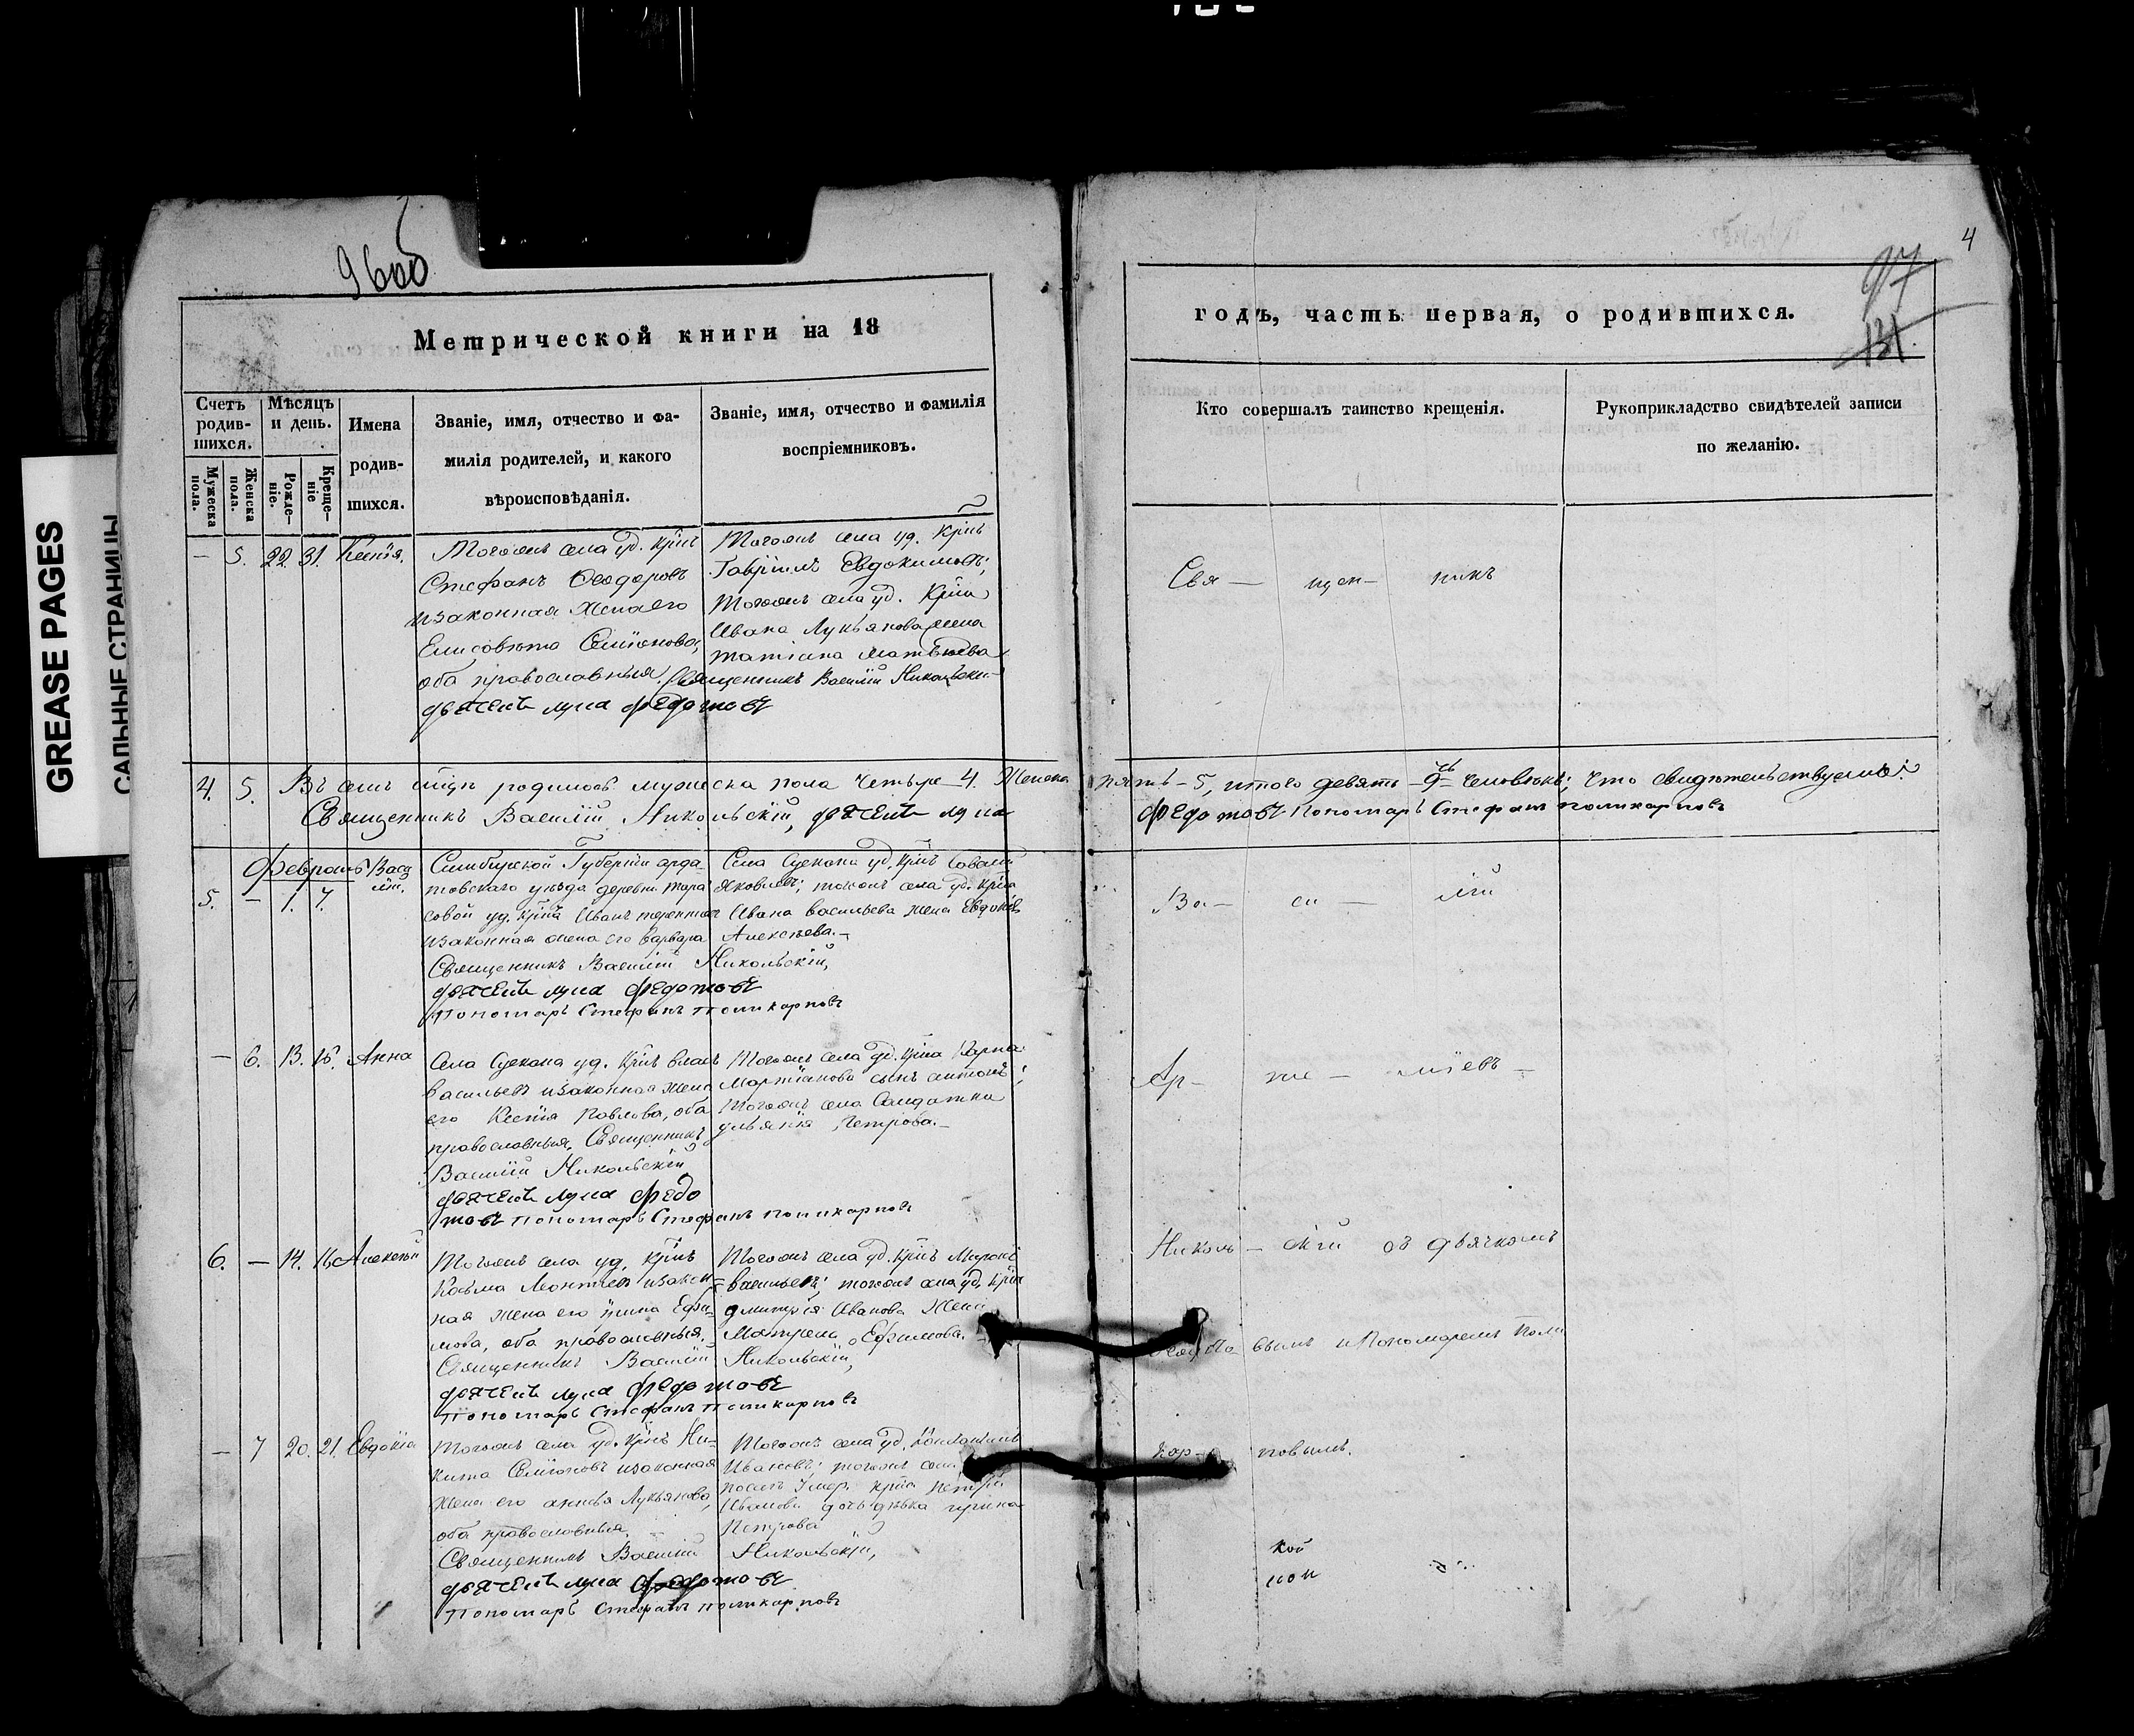 9600
4
97
131
Метрической книги на 18
годъ, часть первая, о родившихся.
Счетъ родив-шихся.
Мѣсяцъ и день.
Имена родив-шихся.
Званіе, имя, отчество и фа-
милія родителей, и какого
вѣроисповѣданія.
Званіе, имя, отчество и фамилія
воспріемниковъ.
Кто совершалъ таинство крещенія.
Рукоприкладство свидѣтелей записи
по желанію.
Мужеска пола.
Женска пола.
Рожде-ніе.
Креще-ніе
— 5. 22. 31. Ксенія.
Тогожъ села уд. Крнъ
Стефанъ Ѳеодоровъ
изаконная жена его
Елисовѣта Семіонова,
оба православныя. Священникъ Василій Никольскій
дьячекъ Лука Федотовъ
Тогожъ села уд. Крнъ
Гавріилъ Евдокимовъ;
Тогожъ села уд. Крна
Ивана Лукьянова жена
Татіана Матвѣева
Свя — щен — никъ
4. 5. Въ семъ родилось мужеска пола четыре — 4. Женска пять — 5, итого девять — 9 человѣкъ; что свидѣтельствуемъ:
Священникъ Василій Никольскій, дьячекъ Лука Федотовъ Пономарь Стефанъ Поликарповъ
Февраль
5. — 1. 7. Васи
лій.
Симбирской Губерніи арда-
товскаго уѣзда деревни Тара
совой уд. Крнъ Иванъ
изаконная жена его Варвара
Священникъ Василій Никольскій,
дьячекъ Лука Федотовъ
Пономарь Стефанъ Поликарповъ
Села уд. Крнъ
Яковлевъ; тогожъ села уд. Крна
Ивана Васильева жена Евдокія
Алексѣева. —
Ва — си — лій
— 6. 13. 16. Анна
Села уд. Крнъ Власъ
Васильевъ изаконная жена
его Ксенія Павлова, оба
православныя. Священникъ
Василій Никольскій
дьячекъ Лука Федо
товъ Пономарь Стефанъ Поликарповъ
Тогожъ села уд. Крна Карпа
Мартіанова сынъ Антонъ;
Тогожъ села Солдатка
Ульянія Петрова. —
Ар — те — міевъ —
6. — 14. 16. Алексѣй
Тогожъ села уд. Крнъ
Козьма Леонтіевъ изакон
ная жена его Ірина Ефи-
мова, оба православныя.
Священникъ Василій Никольскій,
дьячекъ Лука Федотовъ
Пономарь Стефанъ Поликарповъ
Тогожъ села уд. Крнъ Миронъ
Васильевъ; тогожъ села уд. Крна
Дмитрія Иванова жена
Матрена Ефимова. —
Николь — скій съ дьячкомъ
— вымъ и Пономаремъ Поли
— 7 20. 21. Евдокіа
Тогожъ села уд. Крнъ Ни-
кита Семіоновъ изаконная
жена его Лукьянова,
оба православныя.
Священникъ Василій Никольскій,
дьячекъ Лука Федотовъ
Пономарь Стефанъ Поликарповъ
Тогожъ села уд. Константинъ
Ивановъ; тогожъ села
Крна Петра
Иванова дочь дѣвка Ирина
Петрова
кар — повымъ.
GREASE PAGES
САЛЬНЫЕ СТРАНИЦЫ